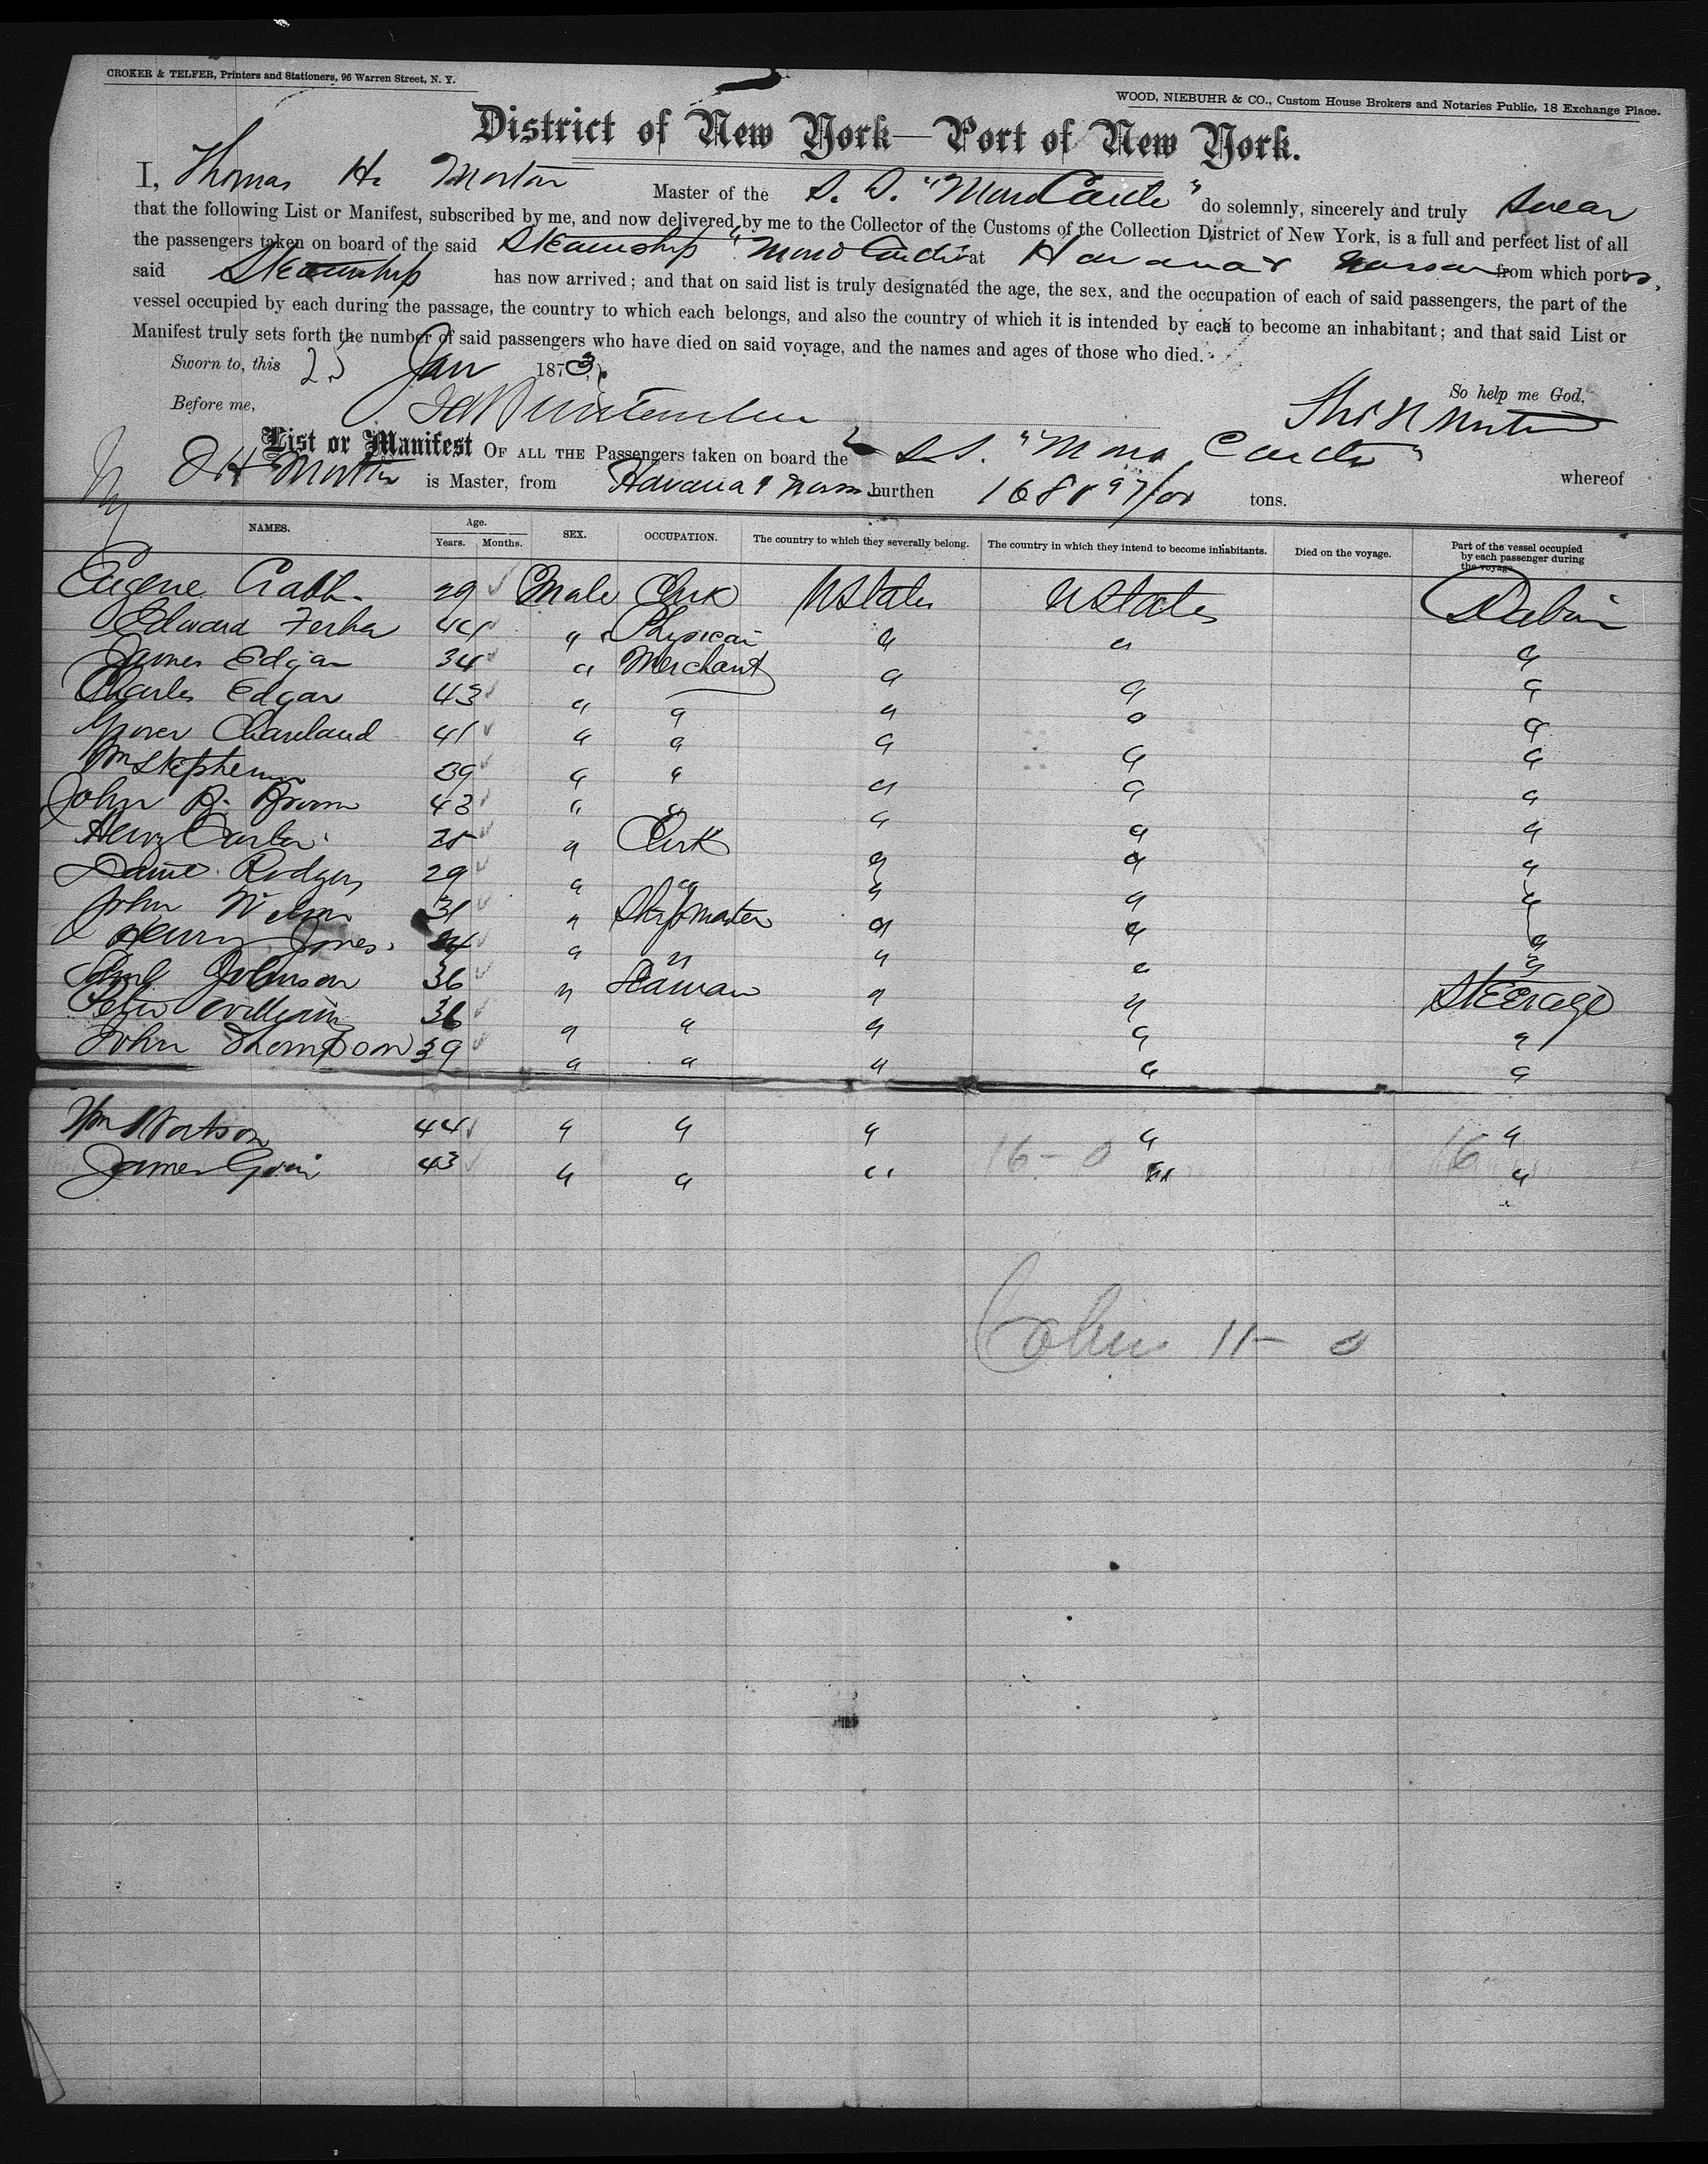 CROKER & TELFER, Printers and Stationers, 96 Warren Street, N. Y.
WOOD, NIEBUHR & CO., Custom House Brokers and Notaries Public, 18 Exchange Place.
District of New York—Port of New York.
I, Thomas H. Morton Master of the S. S. "Moro Castle" do solemnly, sincerely and truly swear
that the following List or Manifest, subscribed by me, and now delivered by me to the Collector of the Customs of the Collection District of New York, is a full and perfect list of all
the passengers taken on board of the said Steamship "Moro Castle" at Havana & Nassau from which ports,
said Steamship has now arrived; and that on said list is truly designated the age, the sex, and the occupation of each of said passengers, the part of the
vessel occupied by each during the passage, the country to which each belongs, and also the country of which it is intended by each to become an inhabitant; and that said List or
Manifest truly sets forth the number of said passengers who have died on said voyage, and the names and ages of those who died.
Sworn to, this 25 Jan 1873
So help me God,
Before me,
List or Manifest OF ALL THE Passengers taken on board the S.S. "Moro Castle" whereof
T H Morton is Master, from Havana & Nassau burthen 1680 97/00 tons.
NAMES. Age. Years. Months. SEX. OCCUPATION. The country to which they severally belong. The country in which they intend to become inhabitants. Died on the voyage. Part of the vessel occupied by each passenger during the voyage
Eugene 29 Male Clerk U States U States Cabin
Edward 44 " Physician " " "
James Edgar 34 " Merchant " " "
Charles Edgar 43 " " " " "
Grover Cleaveland 41 " " " " "
Wm Stephens 39 " " " " "
John B. Brown 43 " " " " "
Henry Carter 25 " Clerk " " "
Daniel Rodgers 29 " " " " "
John Wilson 31 " Shipmaster " " "
Henry Jones 34 " " " " "
Johnson 36 " Seaman " " Steerage
Peter William 36 " " " " "
John Thompson 39 " " " " "
Wm Watson 44 " " " " "
James 43 " " " " "
16 - 0 16
Cabin 11 - 0